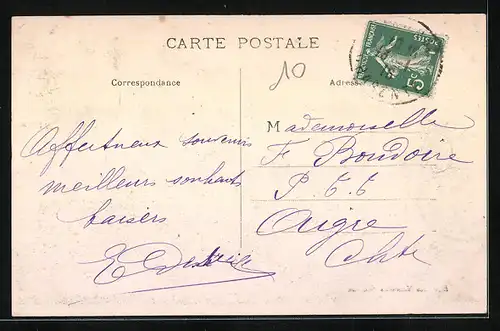 CARTE POSTALE
10
Correspondance
Adresse
POSTES
5c
Affectueux souvenirs
meilleurs souhaits
baisers
Mademoiselle
F Boudoire
P. t. t
Aigre
Chte